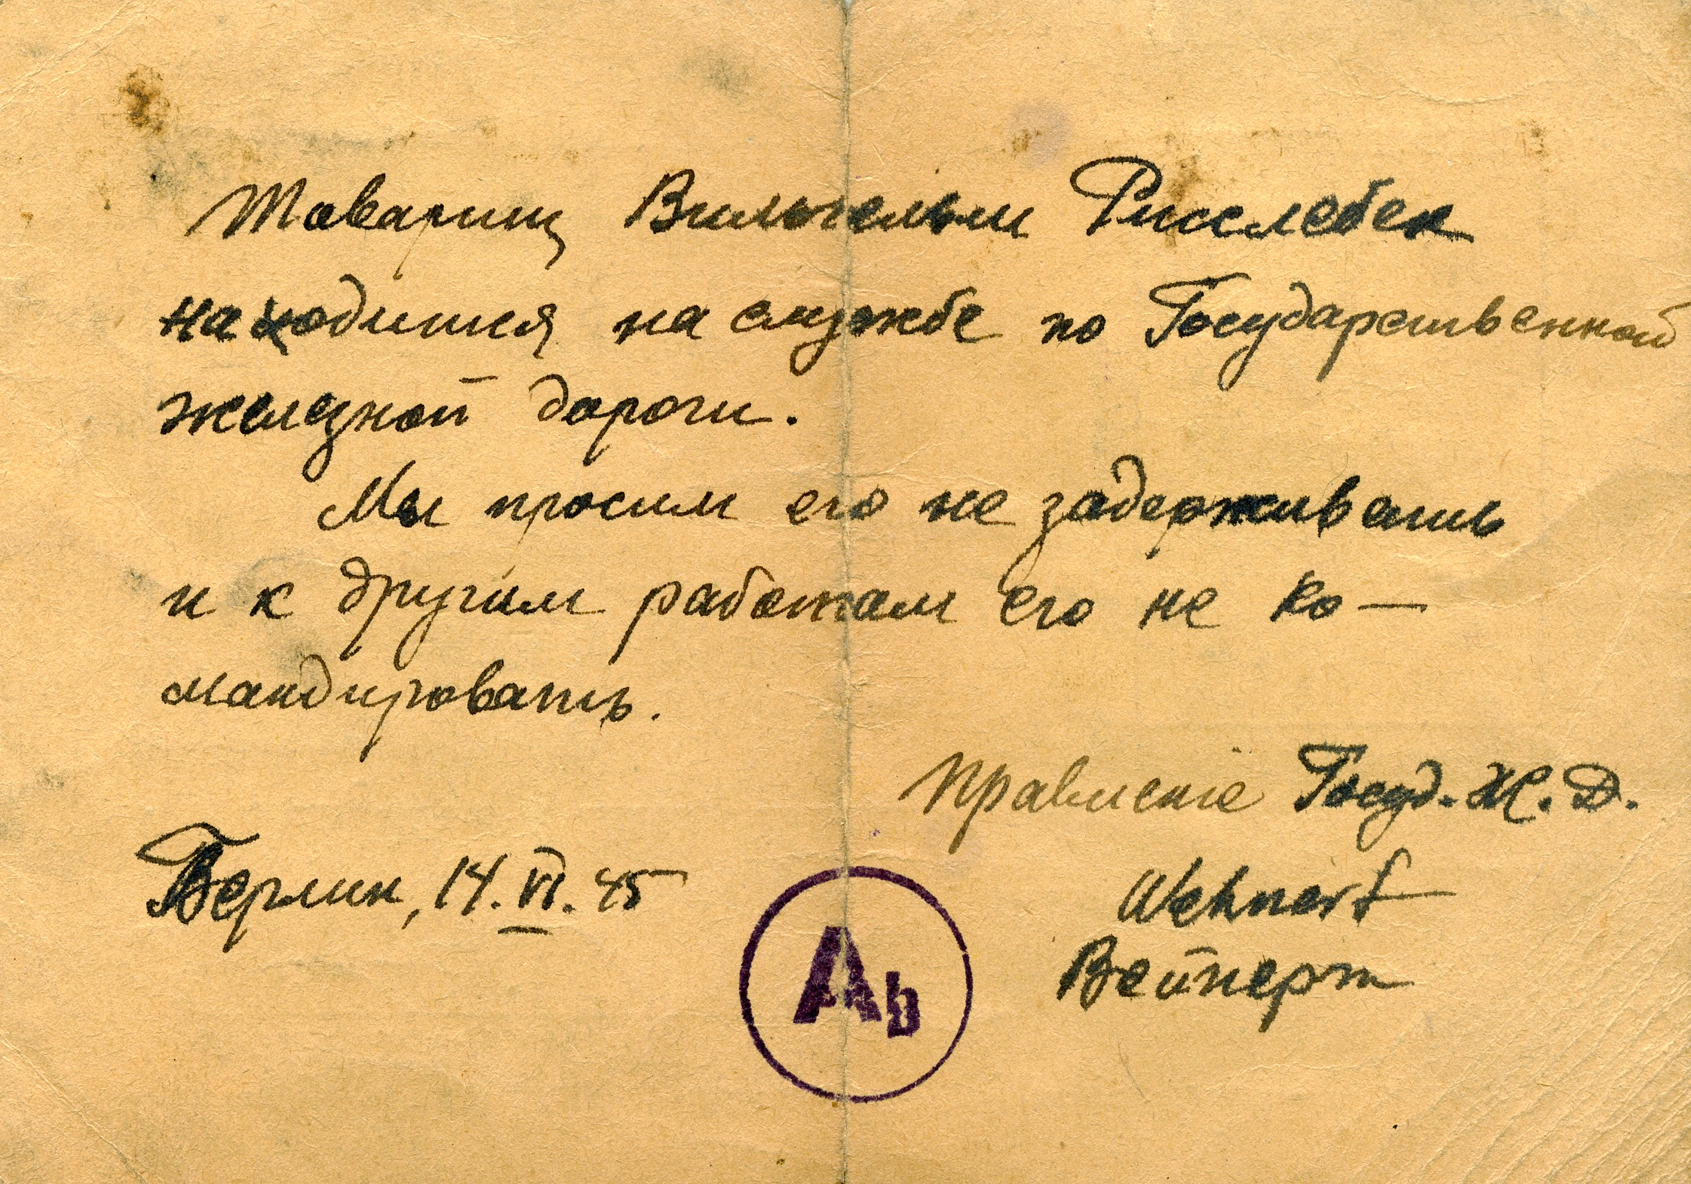 Товарищ Вильгельм Рисслебек
находится на службе по Государственной
железной дороги.
Мы просим его не задерживать
и к другим работам его не ко-
мандировать.
Правление Госуд. Ж. Д.
Берлин, 14. VI. 45
Wehnert
Вейнерт
Ab